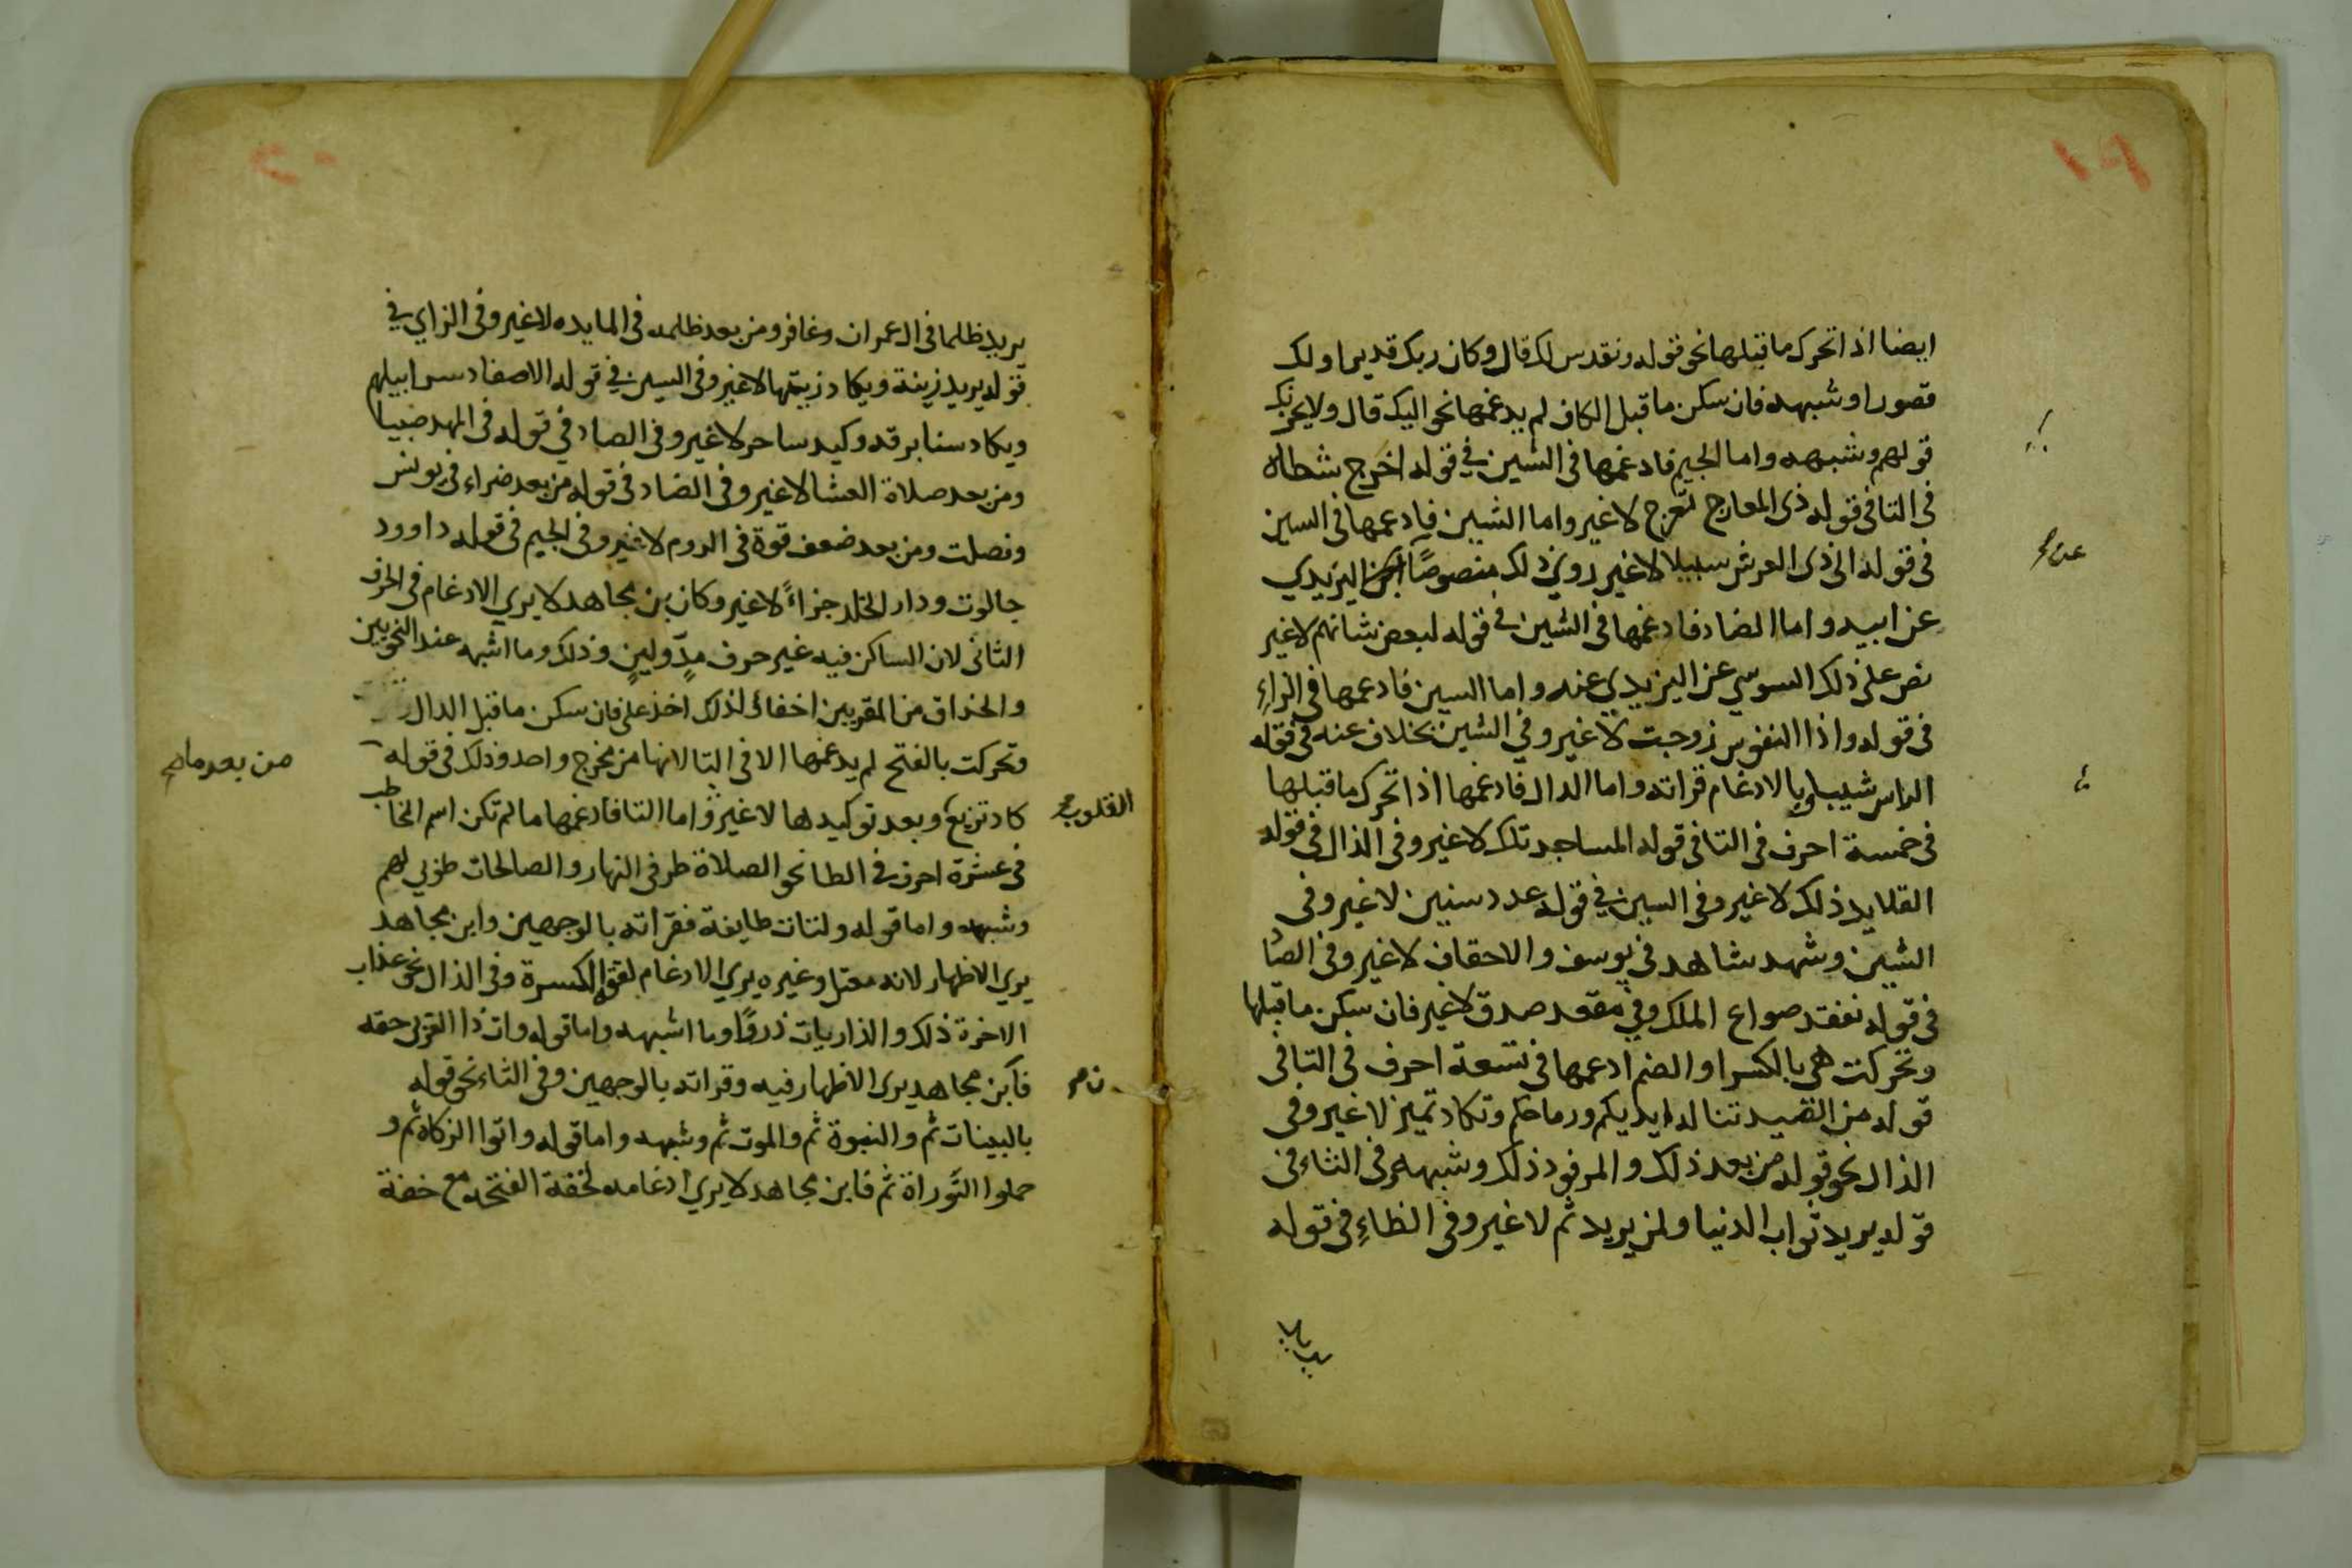 ايضا اذا تحرك ما قبلها نحو قوله ونقدس لك قال وكان ربك قديرا ولك
قصورا وشبهه فان سكن ما قبل الكاف لم يدغمها نحو اليك قال ولا يحزنك
قولهم وشبهه واما الجيم فادغمها في الشين في قوله اخرج شطاه
في التا في قوله ذى المعارج تعرج لا غير واما الشين فادغمها في السين
في قوله الى ذى العرش سبيلا لا غير روى ذلك منصوصًا ابن اليزيدي
عن ابيه واما الضاد فادغمها في الشين في قوله لبعض شانهم لا غير
نص على ذلك السوسي عن اليزيدي عنه واما السين فادغمها في الزاءِ
في قوله واذا النفوس زوجت لا غير وفي الشين بخلاف عنه في قوله
الراس شيبا وبالادغام قراته واما الدال فادغمها اذا تحرك ما قبلها
في خمسة احرف في التا في قوله المساجد تلك لا غير وفى الذال في قوله
القلايد ذلك لا غير وفى السين في قوله عدد سنين لا غير وفى
الشين وشهد شاهد في يوسف والاحقاف لا غير وفى الصا
في قوله نفقد صواع الملك وفي مقعد صدق لا غير فان سكن ما قبلها
وتحركت هي بالكسر او الضم ادغمها في تسعة احرف في التا فى
قوله من الصيد تناله ايديكم ورماحكم وتكاد تميز لا غير وفى
الذال نحو قوله من بعد ذلك والمرفود ذلك وشبهه وفى الثاء فى
قوله يريد ثواب الدنيا ولمن يريد ثم لا غير وفى الظاءِ في قوله
يريد ظلما فى ال عمران وغافر ومن بعد ظلمه فى المايده لا غير وفى الزاي في
قوله يريد زينة ويكاد زيتها لا غير وفى السين في قوله الاصفاد سرابيلهم
ويكاد سنا برقه وكيد ساحر لا غير وفى الصاد في قوله فى المهد صبيا
ومن بعد صلاة العشا لا غير وفى الضاد فى قوله من بعد ضراء فى يونس
وفصلت ومن بعد ضعف قوة فى الروم لا غير وفى الجيم فى قوله داوود
جالوت ودار الخلد جزاءً لا غير وكان بن مجاهد لا يري الادغام فى الحرف
الثانى لان الساكن فيه غير حرف مدٍّ ولينٍ وذلك وما اشبهه عند النحويين
والحذاق من المقريين اخفائ لذلك اخذ على فان سكن ما قبل الدال
وتحركت بالفتح لم يدغمها الا في التا لانها من مخرج واحد وذلك في قوله
من بعد ما صح
كاد تزيغ وبعد توكيدها لا غير واما التا فادغمها ما لم تكن اسم المخاطب
القلوب صح
فى عشرة احرف فى الطا نحو الصلاة طرفى النهار والصالحات طوبي لهم
وشبهه واما قوله ولتات طايفة فقراته بالوجهين وابن مجاهد
يري الاظهار لانه معتل وغيره يري الادغام لقوة الكسرة وفى الذال نحو عذاب
الاخرة ذلك والذاريات ذروًا وما اشبهه واما قوله وات ذا القربى حقه
فابن مجاهد يرى الاظهار فيه وقراته بالوجهين وفى الثاء نحو قوله
بالبينات ثم والنبوة ثم والموت ثم وشبهه واما قوله واتوا الزكاة ثم و
حملوا التوراة ثم فابن مجاهد لا يري ادغامه لخفة الفتحة مع خفة